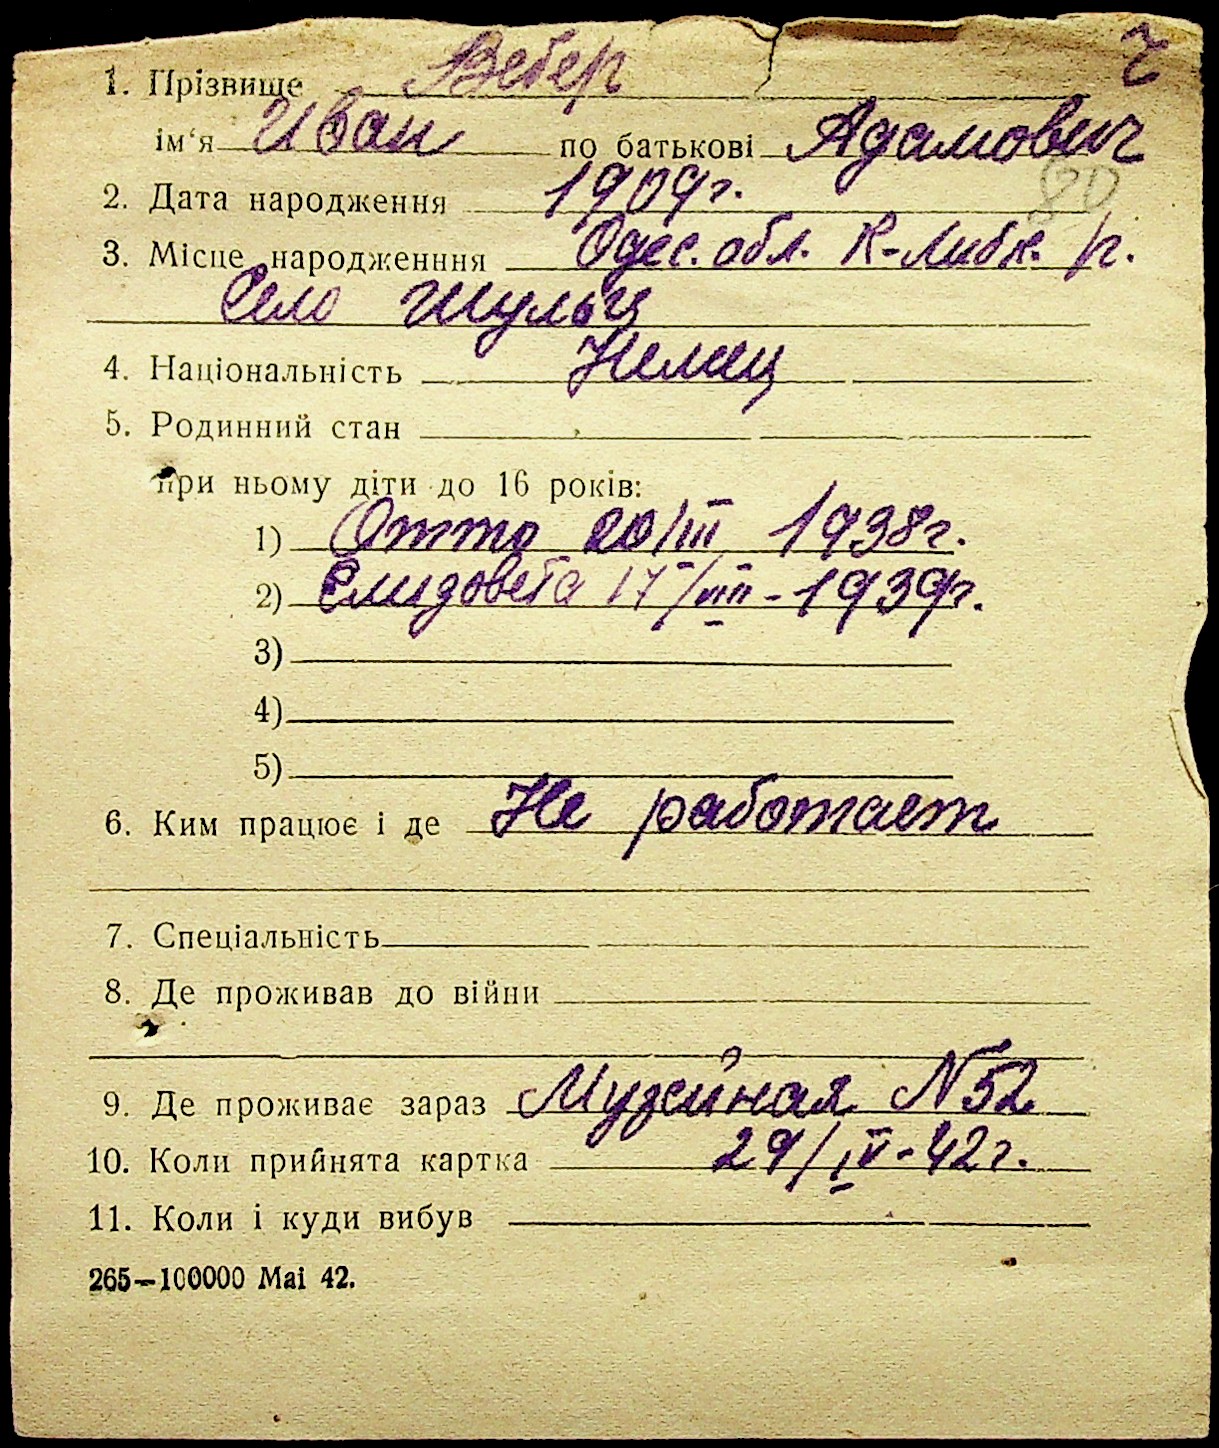 1. Прізвище Вебер ч
ім'я Иван по батькові Адамович
80
2. Дата народження 1909г.
3. Місце народженння Одес. обл. К-Либк. р.
Село Шульц
4. Національність Немец
5. Родинний стан
при ньому діти до 16 років:
1) Отто 20/III 1938г.
2) Елизовета 17/VIII-1939г.
3)
4)
5)
6. Ким працює і де Не работает
7. Спеціальність
8. Де проживав до війни
9. Де проживає зараз Музейная N 52
10. Коли прийнята картка 29/IV-42г.
11. Коли і куди вибув
265—100000 Mai 42.